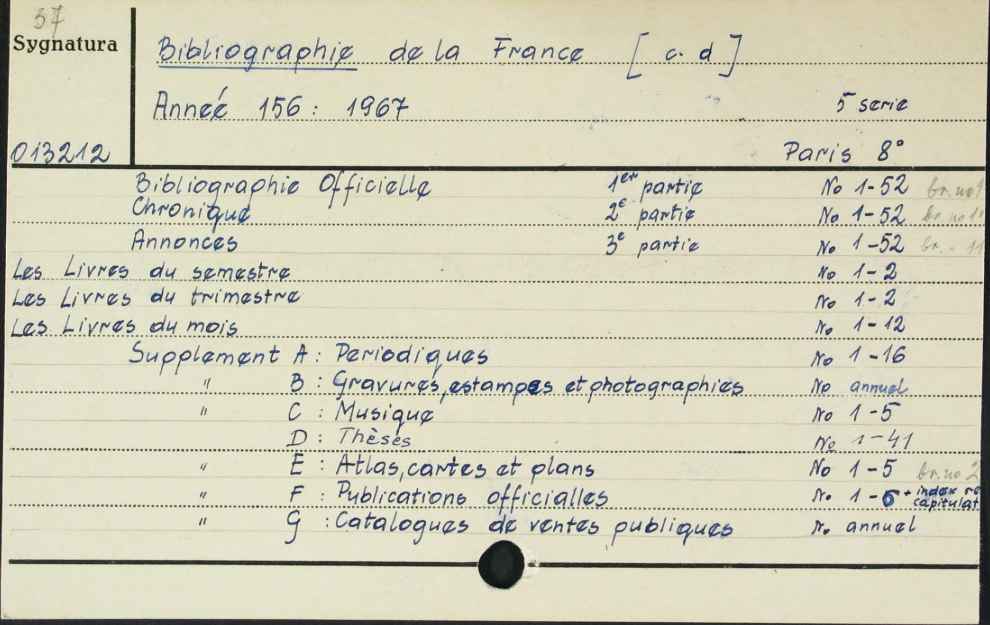 37
Sygnatura
Bibliographie de la France [c. d]
Anneé 156: 1967 5 serie
013212 Paris 8°
Bibliographie Officielle 1er partie No 1-52 br. no
Chronique 2e partie No 1-52 br. no
Annonces 3e partie No 1-52 br.
Les Livres du semestre No 1-2
Les Livres du trimestre No 1-2
Les Livres du mois No 1-12
Supplement A: Periodiques No 1-16
" B: Gravures, estampes et photographies No annuel
" C: Musique No 1-5
D: Thèses No 1-41
" E: Atlas, cartes et plans No 1-5 br. no 2
" F: Publications officialles No 1-6 + index re
capitulat
" G: Catalogues de ventes publiques No annuel